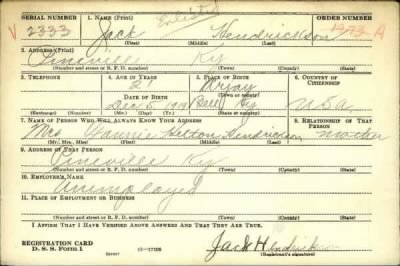 SERIAL NUMBER 1. NAME (Print) Enlisted ORDER NUMBER
V 2333 Jack Hendrickson A
(First) (Middle) (Last)
2. ADDRESS (Print)
Pineville Ky
(Number and street or R. F. D. number) (Town) (County) (State)
3. TELEPHONE 4. AGE IN YEARS 5. PLACE OF BIRTH 6. COUNTRY OF CITIZENSHIP
21
DATE OF BIRTH (Town or county)
Dec 5, Bell Ky U.S.A
(Exchange) (Number) (Mo.) (Day) (Yr.) (State or country)
7. NAME OF PERSON WHO WILL ALWAYS KNOW YOUR ADDRESS 8. RELATIONSHIP OF THAT PERSON
Mrs Fannie Helton Hendrickson mother
(Mr., Mrs., Miss) (First) (Middle) (Last)
9. ADDRESS OF THAT PERSON
Pineville Ky
(Number and street or R. F. D. number) (Town) (County) (State)
10. EMPLOYER'S NAME
Unemployed
11. PLACE OF EMPLOYMENT OR BUSINESS
(Number and street or R. F. D. number) (Town) (County) (State)
I AFFIRM THAT I HAVE VERIFIED ABOVE ANSWERS AND THAT THEY ARE TRUE.
REGISTRATION CARD
D. S. S. Form 1 16—17105 Jack Hendrickson
(Registrant's signature)